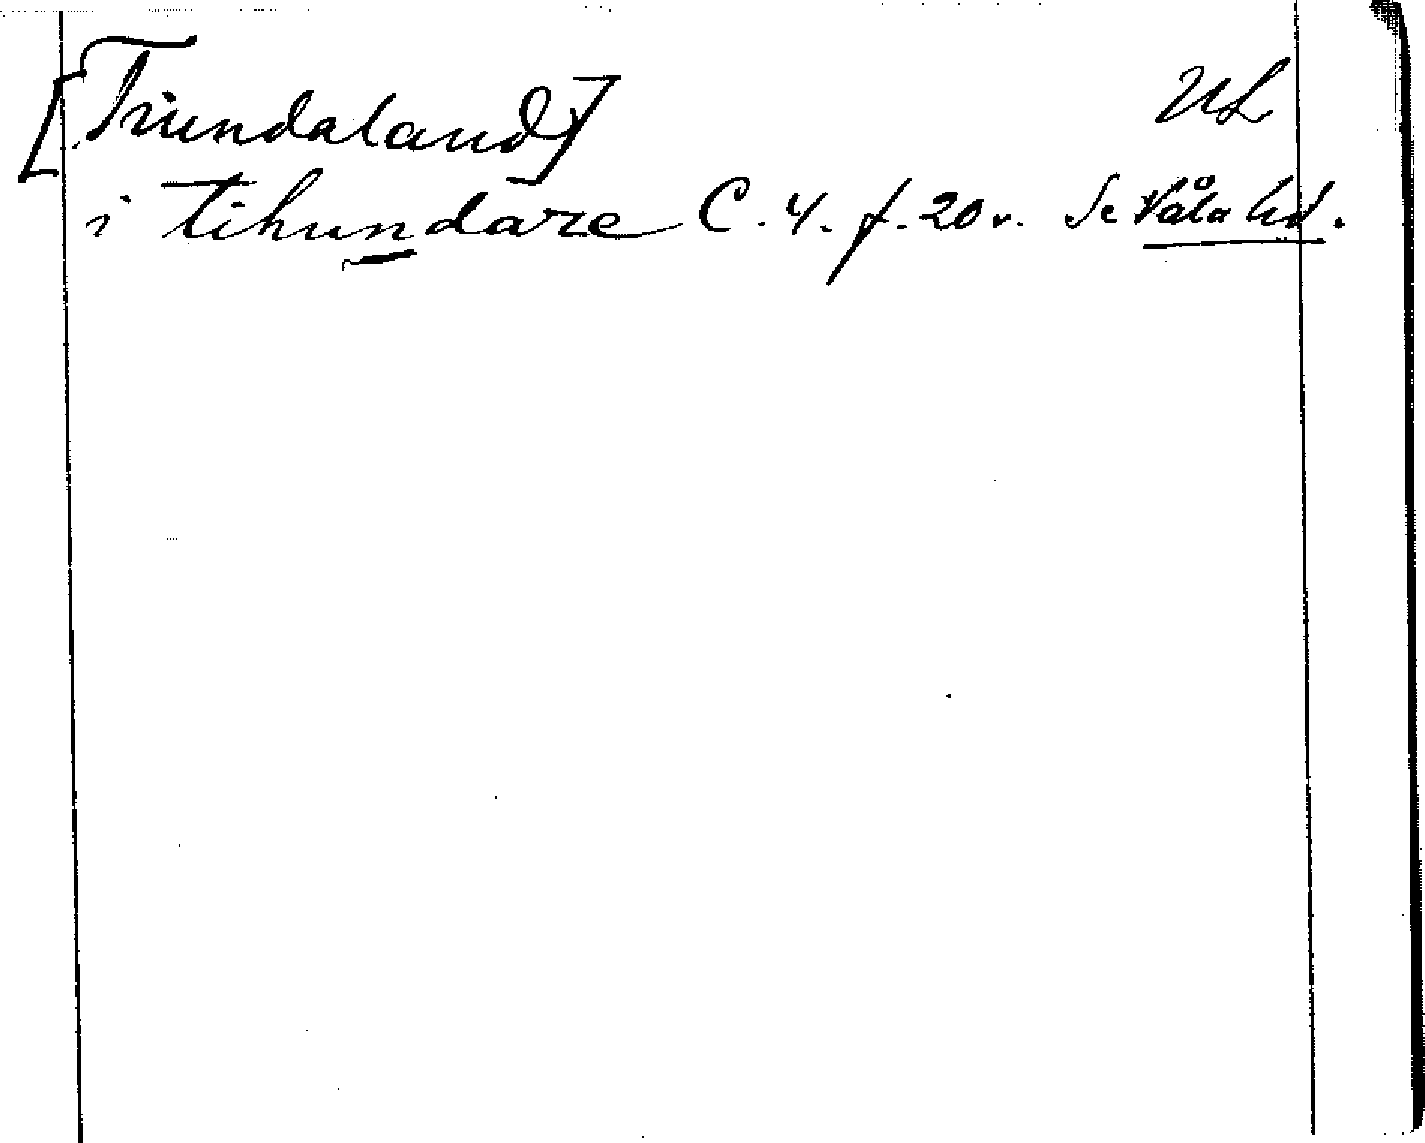 [Triundaland] UL
i tihundare C. 4. f. 20 v. Se Våla hd.